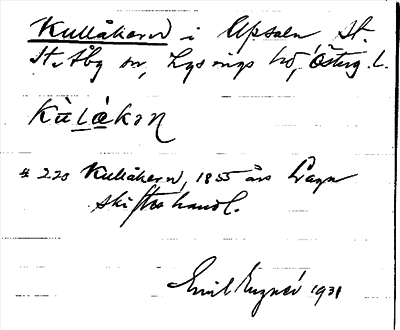 Kullåkern i Upsala St.
St. Åby sn, Lysings hd, Österg. L.
Kùlåkɔn
# 220 Kullåkern, 1855 års Laga
skifteshandl.
Emil 1931